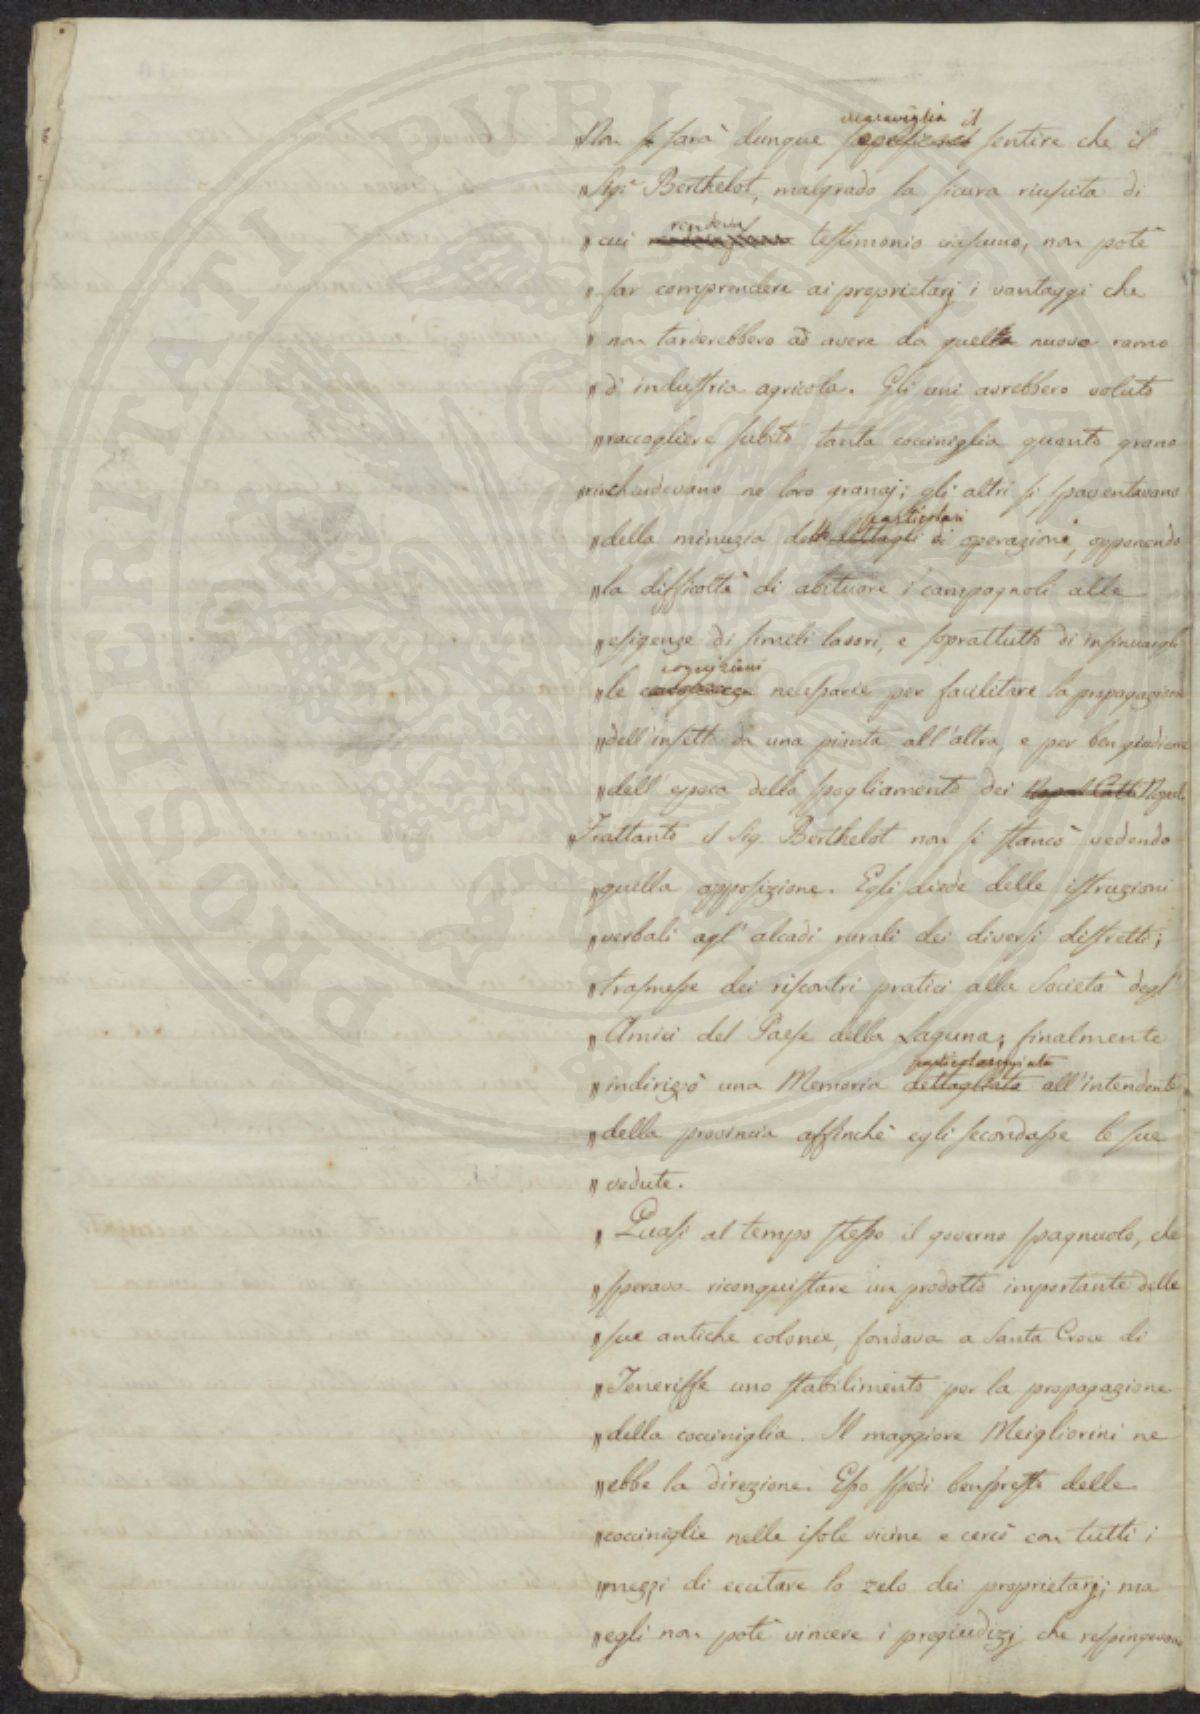 "Non si sarà dunque meraviglia il sentire che il
"Sigr Berthelot, malgrado la sicura riuscita di
"cui rendeva testimonio ciascuno, non potè
"far comprendere ai proprietarj i vantaggi che
"non tarderebbero ad avere da quello nuovo ramo
"d'industria agricola. Gli uni avrebbero voluto
"raccogliere subito tanta cocciniglia quanto grano
"rinchiudevano ne loro granaj; gli altri si spaventavano
"della minuzia dei particolari di operazione, opponendo
"la difficoltà di abituare i campagnoli alle
"esigenze di simili lavori, e soprattutto di insinuargli
"le cognizioni necessarie per facilitare la propagazione
"dell'insetto da una pianta all'altra, e per ben giudicare
"dell'epoca dello spogliamento dei Nopal Nopal.
"Frattanto il Sig. Berthelot non si stancò vedendo
"quella opposizione. Egli diede delle istruzioni
"verbali agl'alcadi rurali dei diversi distretti;
"trasmesse dei riscontri pratici alla Società degl'
"Amici del Paese della Laguna; finalmente
"indirizzò una Memoria particolareggiata dettagliata all'intendente
"della provincia affinchè egli secondasse le sue
"vedute.
" Quasi al tempo stesso il governo spagnuolo, che
"sperava riconquistare un prodotto importante delle
"sue antiche colonie, fondava a Santa Croce di
"Teneriffe uno stabilimento per la propagazione
"della cocciniglia. Il maggiore Meigliorini ne
"ebbe la direzione. Esso spedì benpresto delle
"cocciniglie nelle isole vicine e cercò con tutti i
"mezzi di eccitare lo zelo dei proprietarj; ma
"egli non potè vincere i pregiudizj che respingevano
PROSPERITATI PUBLICAE AUGENDAE